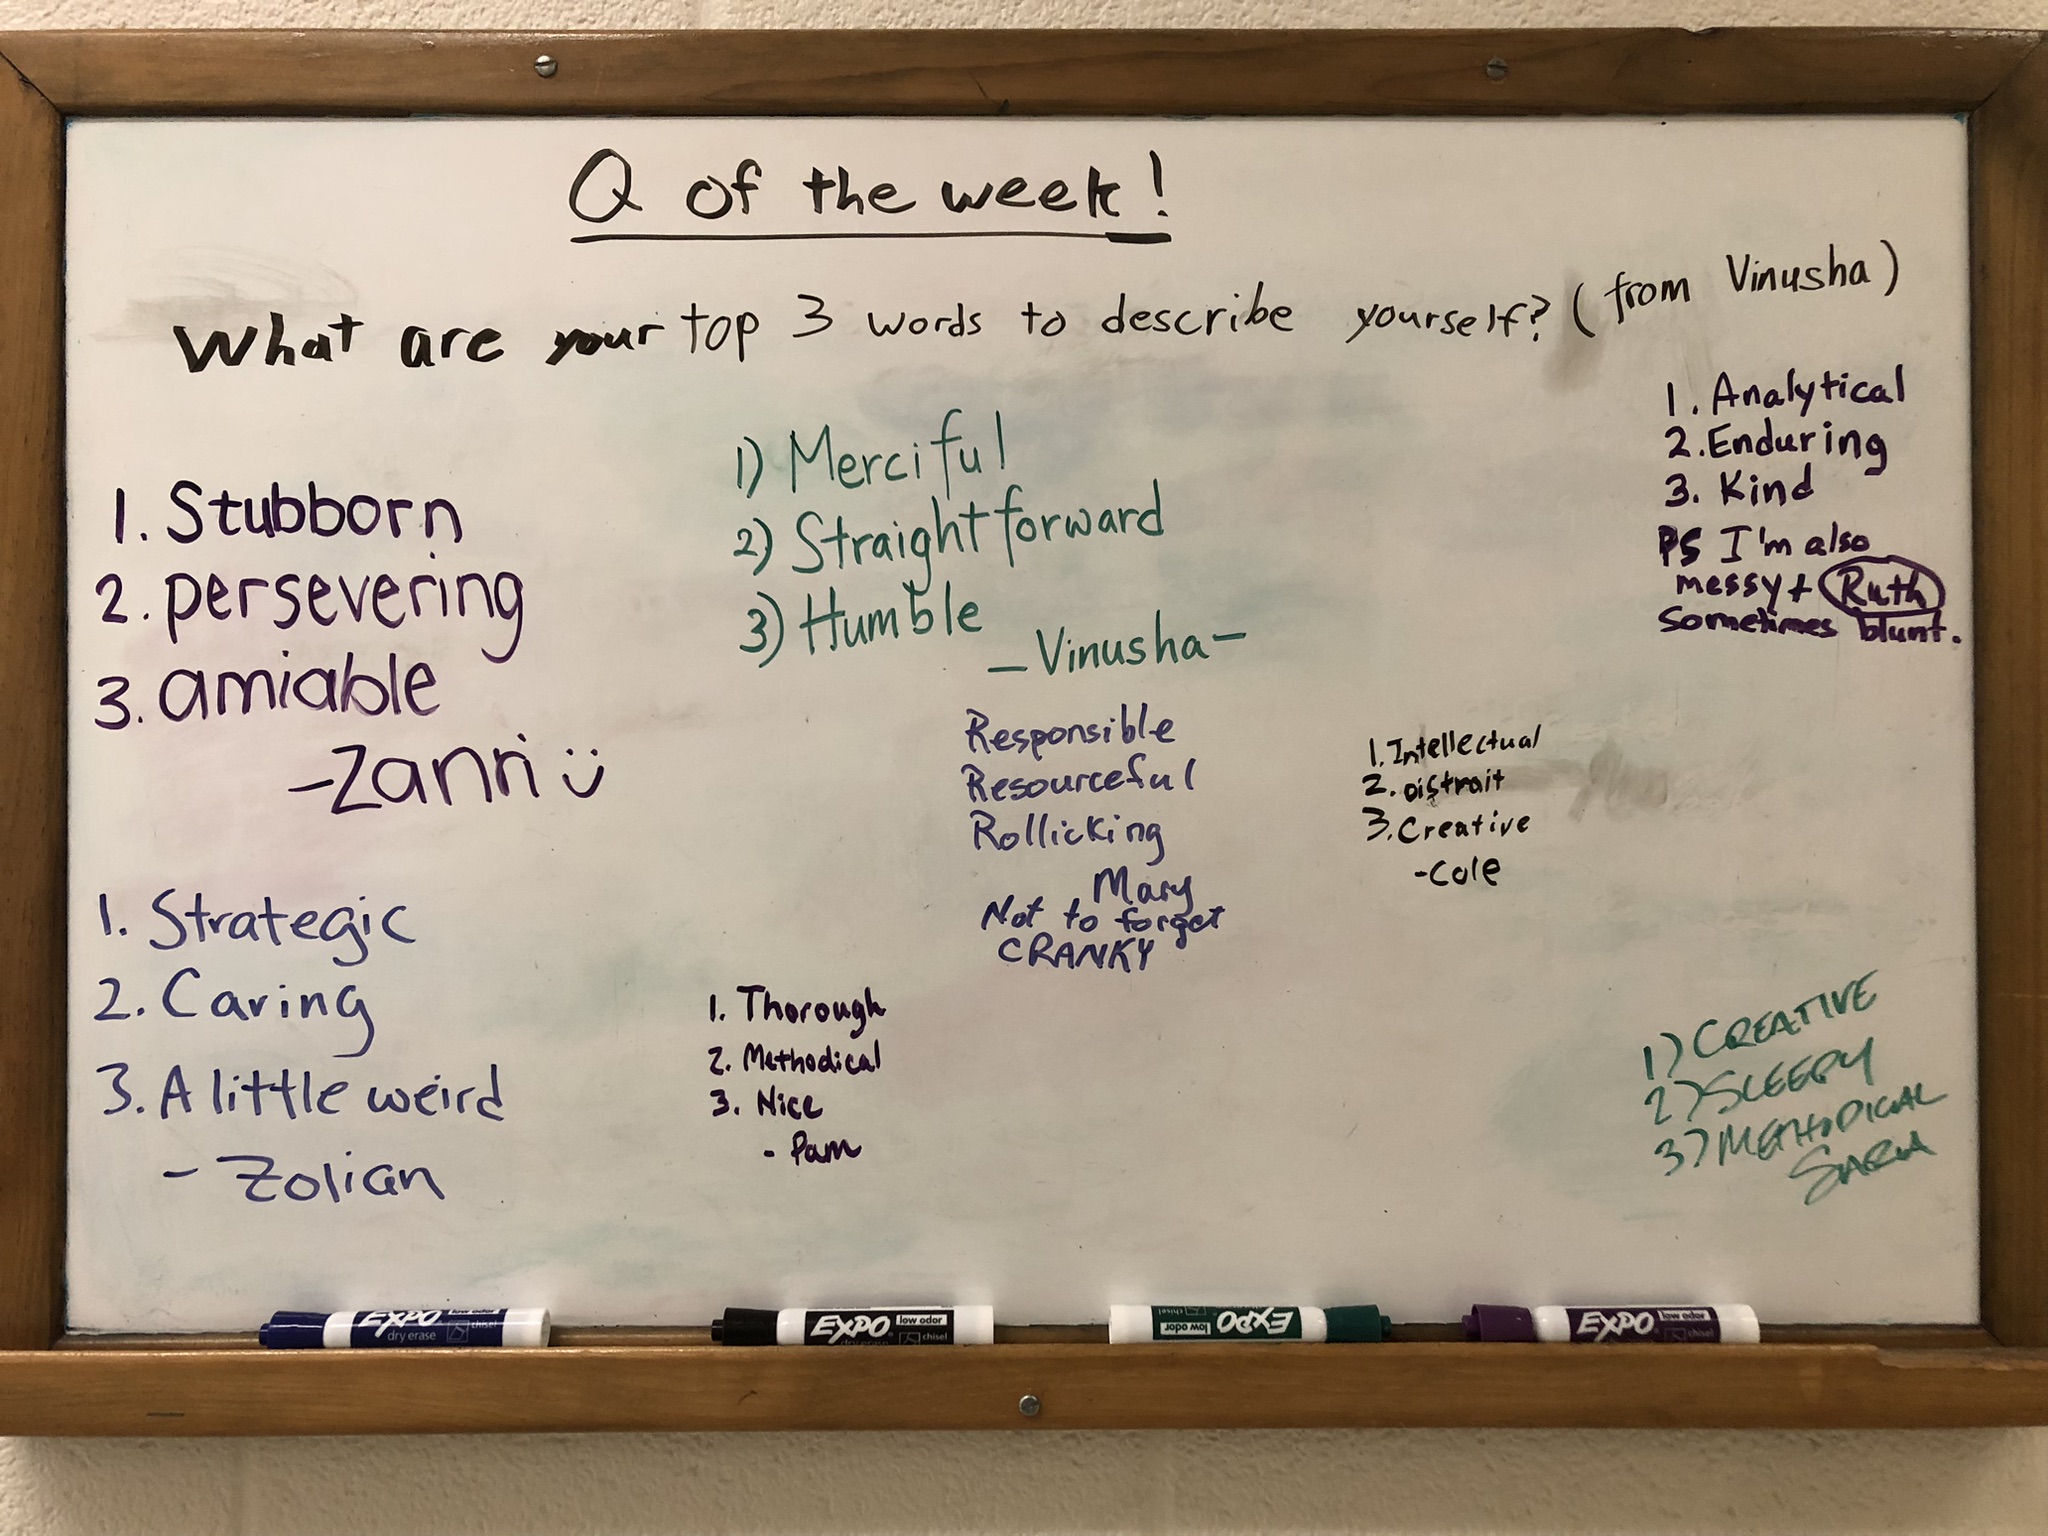 Q of the week!
What are your top 3 words to describe yourself? (from Vinusha)
1. Stubborn
2. persevering
3. amiable
-Zanri
1) Merciful
2) Straightforward
3) Humble
-Vinusha-
1. Analytical
2. Enduring
3. Kind
PS I'm also
messy + Ruth
sometimes blunt.
Responsible
Resourceful
Rollicking
Mary
Not to forget
CRANKY
1. Intellectual
2. Distrait
3. Creative
-Cole
1. Strategic
2. Caring
3. A little weird
- Zolian
1. Thorough
2. Methodical
3. Nice
- Pam
1) CREATIVE
2) SLEEPY
3) METHODICAL
SARA
EXPO
low odor
dry erase
chisel
EXPO
low odor
dry erase
chisel
EXPO
low odor
chisel
EXPO
low odor
chisel